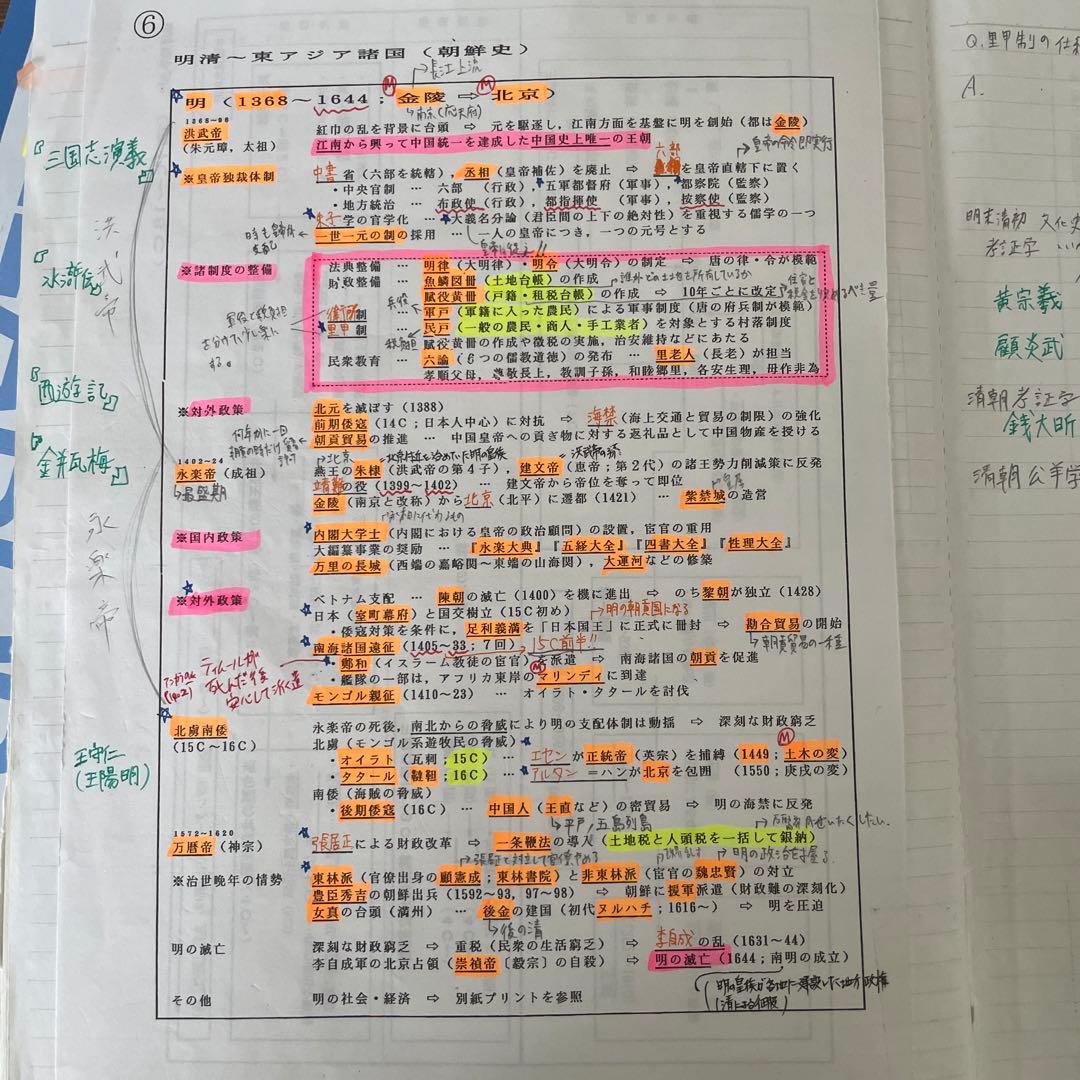 ⑥
明清～東アジア諸国（朝鮮史）
長江上流
明（1368～1644；金陵⇨北京）
南京（応天府）
1368～98
洪武帝
（朱元璋，太祖）
紅巾の乱を背景に台頭 ⇨ 元を駆逐し，江南方面を基盤に明を創始（都は金陵）
江南から興って中国統一を達成した中国史上唯一の王朝
皇帝の命令即実行
※皇帝独裁体制
中書省（六部を統轄），丞相（皇帝補佐）を廃止 ⇨ 六部を皇帝直轄下に置く
・中央官制 … 六部（行政），五軍都督府（軍事），都察院（監察）
・地方統治 … 布政使（行政），都指揮使（軍事），按察使（監察）
朱子学の官学化 … 大義名分論（君臣間の上下の絶対性）を重視する儒学の一つ
一世一元の制の採用 … 一人の皇帝につき，一つの元号とする
※諸制度の整備
法典整備 … 明律（大明律）・明令（大明令）の制定 ⇨ 唐の律・令が模範
財政整備 … 魚鱗図冊（土地台帳）の作成
誰がどの土地を所有しているか
賦役黄冊（戸籍・租税台帳）の作成 ⇨ 10年ごとに改定
兵役
衛所制 … 軍戸（軍籍に入った農民）による軍事制度（唐の府兵制が模範）
里甲制 … 民戸（一般の農民・商人・手工業者）を対象とする村落制度
賦役黄冊の作成や徴税の実施，治安維持などにあたる
民衆教育 … 六諭（6つの儒教道徳）の発布 … 里老人（長老）が担当
孝順父母，尊敬長上，教訓子孫，和睦郷里，各安生理，毋作非為
※対外政策
北元を滅ぼす（1388）
前期倭寇（14C；日本人中心）に対抗 ⇨ 海禁（海上交通と貿易の制限）の強化
朝貢貿易の推進 … 中国皇帝への貢ぎ物に対する返礼品として中国物産を授ける
1402～24
永楽帝（成祖）
最盛期
北京
燕王の朱棣（洪武帝の第4子），建文帝（恵帝；第2代）の諸王勢力削減策に反発
靖難の役（1399～1402） … 建文帝から帝位を奪って即位
金陵（南京と改称）から北京（北平）に遷都（1421） … 紫禁城の造営
皇居
※国内政策
内閣大学士（内閣における皇帝の政治顧問）の設置，宦官の重用
大編纂事業の奨励 … 『永楽大典』『五経大全』『四書大全』『性理大全』
万里の長城（西端の嘉峪関～東端の山海関），大運河などの修築
※対外政策
ベトナム支配 … 陳朝の滅亡（1400）を機に進出 ⇨ のち黎朝が独立（1428）
日本（室町幕府）と国交樹立（15C初め）
明の朝貢国になる
・倭寇対策を条件に，足利義満を「日本国王」に正式に冊封 ⇨ 勘合貿易の開始
朝貢貿易の一種
南海諸国遠征（1405～33；7回）
15C前半!!
・鄭和（イスラーム教徒の宦官）を派遣 ⇨ 南海諸国の朝貢を促進
・艦隊の一部は，アフリカ東岸のマリンディに到達
モンゴル親征（1410～23） … オイラト・タタールを討伐
ティムールが
死んだ後
安心して派遣
北虜南倭
（15C～16C）
永楽帝の死後，南北からの脅威により明の支配体制は動揺 ⇨ 深刻な財政窮乏
北虜（モンゴル系遊牧民の脅威）
・オイラト（瓦剌；15C） … エセンが正統帝（英宗）を捕縛（1449；土木の変）
・タタール（韃靼；16C） … アルタン＝ハンが北京を包囲（1550；庚戌の変）
南倭（海賊の脅威）
・後期倭寇（16C） … 中国人（王直など）の密貿易 ⇨ 明の海禁に反発
平戸，五島列島
1572～1620
万暦帝（神宗）
張居正による財政改革 ⇨ 一条鞭法の導入（土地税と人頭税を一括して銀納）
明の政治を握る
※治世晩年の情勢
東林派（官僚出身の顧憲成；東林書院）と非東林派（宦官の魏忠賢）の対立
豊臣秀吉の朝鮮出兵（1592～93，97～98） ⇨ 朝鮮に援軍派遣（財政難の深刻化）
女真の台頭（満州） … 後金の建国（初代ヌルハチ；1616～） ⇨ 明を圧迫
後の清
明の滅亡
深刻な財政窮乏 ⇨ 重税（民衆の生活窮乏） ⇨ 李自成の乱（1631～44）
李自成軍の北京占領（崇禎帝〔毅宗〕の自殺） ⇨ 明の滅亡（1644；南明の成立）
明の皇族が各地に建設した地方政権
（清による征服）
その他
明の社会・経済 ⇨ 別紙プリントを参照
『三国志演義』
『水滸伝』
『西遊記』
『金瓶梅』
洪武帝
永楽帝
王守仁
（王陽明）
Q.里甲制の仕
A.
明末清初 文化史
考証学
黄宗羲
顧炎武
清朝考証学
銭大昕
清朝公羊学